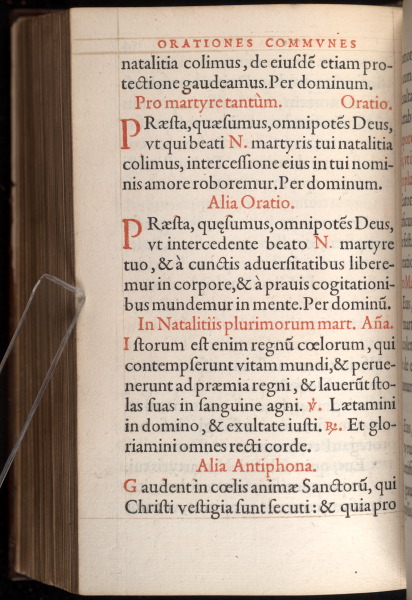 ORATIONES COMMVNES
natalitia colimus, de eiusdē etiam pro-
tectione gaudeamus. Per dominum.
Pro martyre tantùm. Oratio.
PRæsta, quæsumus, omnipotēs Deus,
vt qui beati N. martyris tui natalitia
colimus, intercessione eius in tui nomi-
nis amore roboremur. Per dominum.
Alia Oratio.
PRæsta, quęsumus, omnipotēs Deus,
vt intercedente beato N. martyre
tuo, & à cunctis aduersitatibus libere-
mur in corpore, & à prauis cogitationi-
bus mundemur in mente. Per dominū.
In Natalitiis plurimorum mart. Aña.
Istorum est enim regnū cœlorum, qui
contempserunt vitam mundi, & perue-
nerunt ad præmia regni, & lauerūt sto-
las suas in sanguine agni. ℣. Lætamini
in domino, & exultate iusti. ℟. Et glo-
riamini omnes recti corde.
Alia Antiphona.
Gaudent in cœlis animæ Sanctorū, qui
Christi vestigia sunt secuti: & quia pro